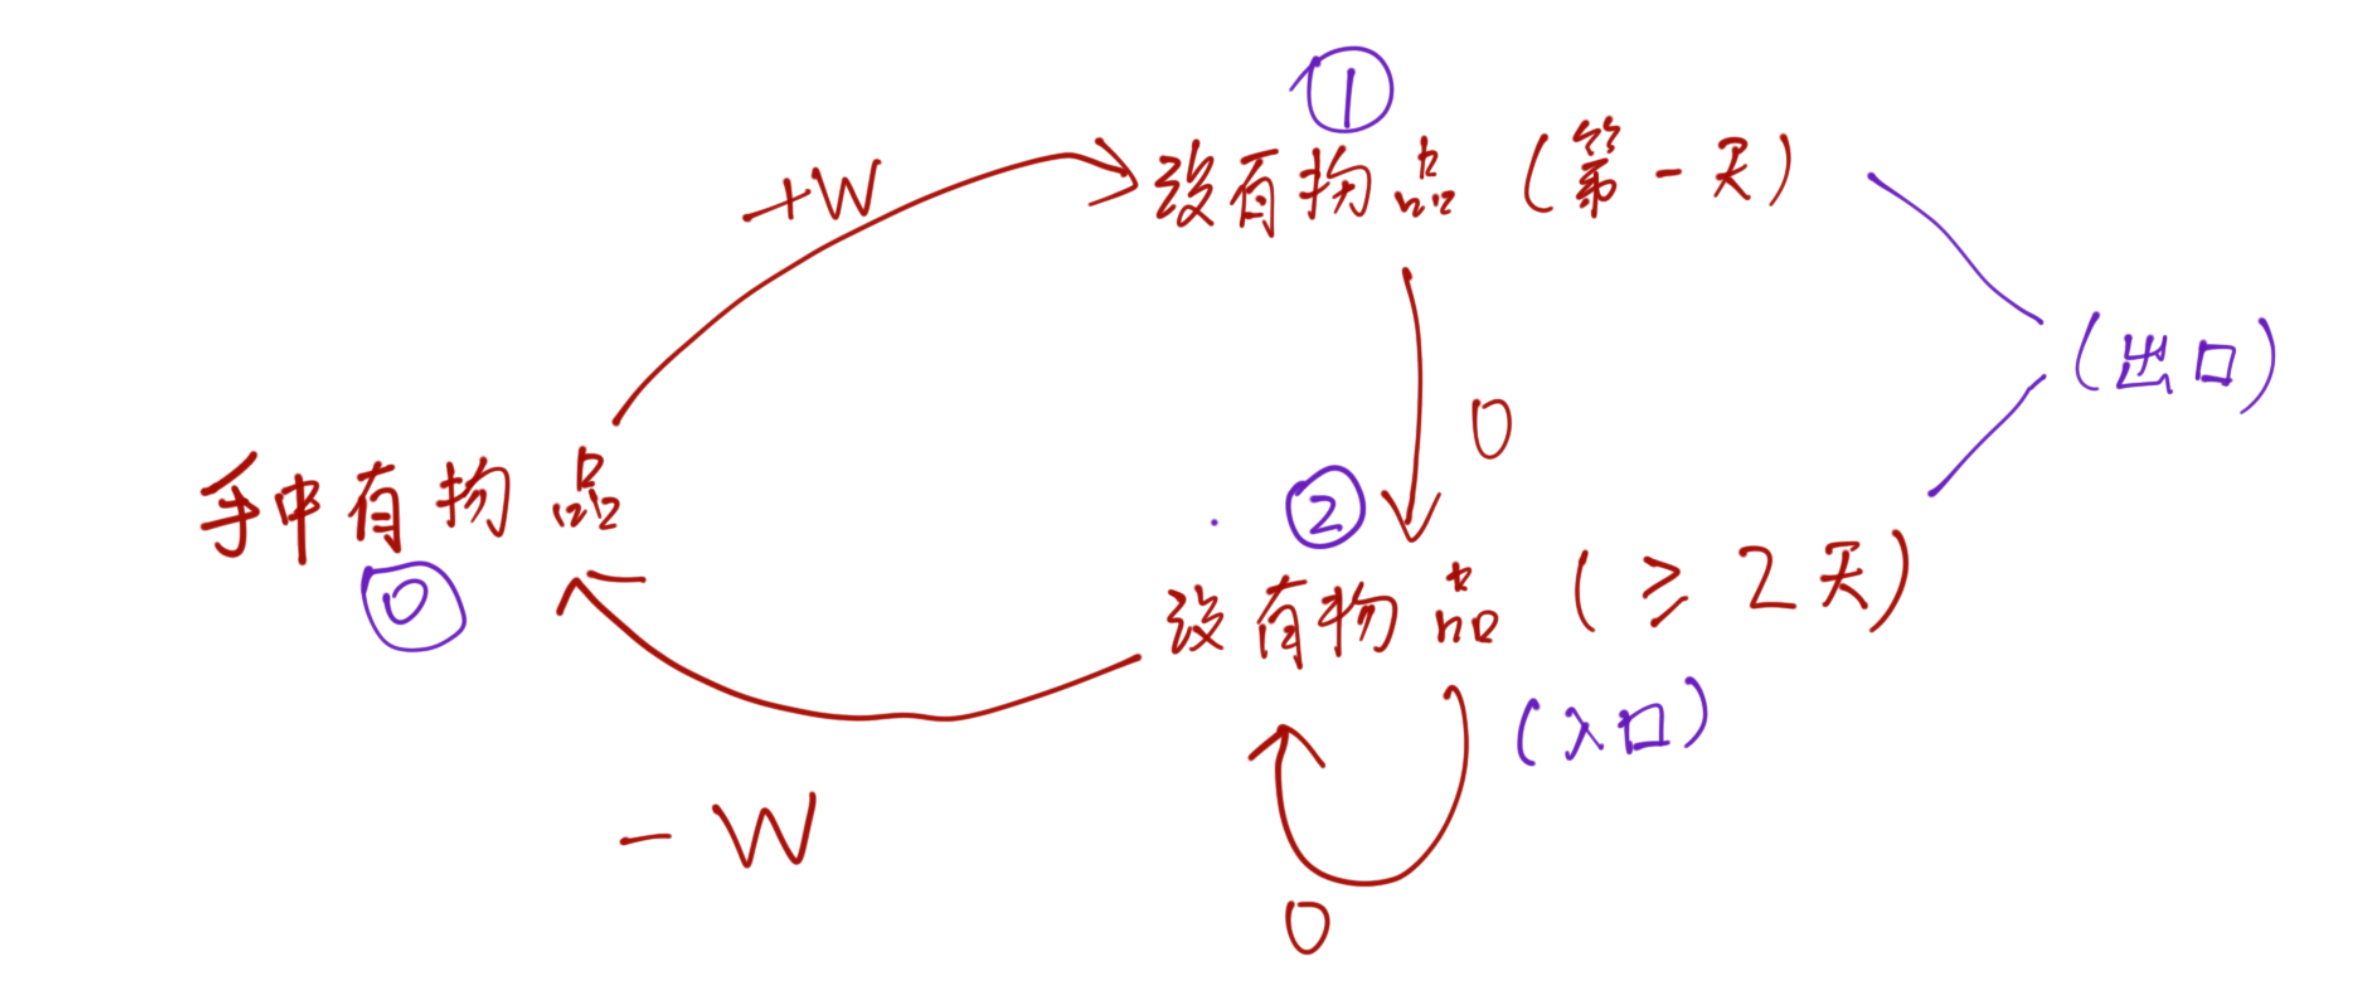 ①
+W
没有物品 (第一天)
(出口)
0
手中有物品
②
⓪
没有物品 ( ≥ 2天)
(入口)
- W
0